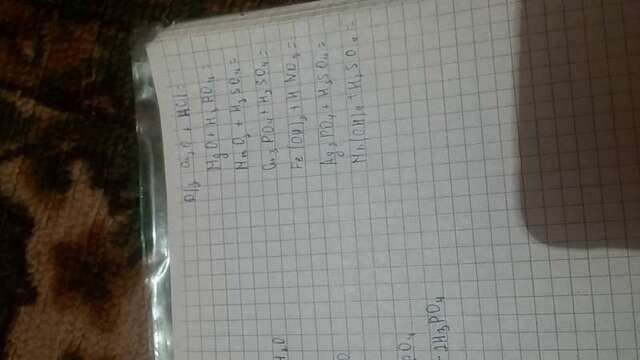 D/з Cu₂O + HCl =
MgO + H₃PO₄ =
MnO₂ + H₂SO₄ =
Cu₃PO₄ + H₂SO₄ =
Fe(OH)₃ + HNO₃ =
Ag₃PO₄ + H₂SO₄ =
Mn(OH)₄ + H₂SO₄ =
H₂O
O
PO₄
2H₃PO₄